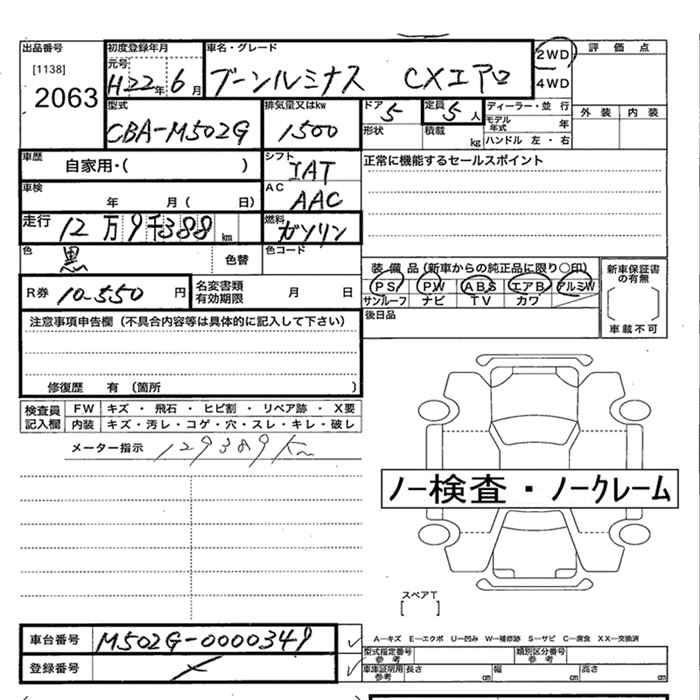 出品番号 初度登録年月 車名・グレード 2WD 評価点
[1138] 元号
2063 H22年6月 ブーンルミナス CXエアロ 4WD
型式 排気量又はkw ドア 5 定員 5人 ディーラー・並行 外装 内装
CBA-M502G 1500 形状 積載 kg モデル年式 年
ハンドル 左・右
車歴 自家用・( ) シフト IAT 正常に機能するセールスポイント
車検 年 月( 日) AC AAC
走行 12万9千388km 燃料 ガソリン
色 黒 色替 色コード
装備品(新車からの純正品に限り○印) 新車保証書の有無
R券 10-550円 名変書類有効期限 月 日 PS PW ABS エアB アルミW
サンルーフ ナビ TV カワ
注意事項申告欄(不具合内容等は具体的に記入して下さい) 後日品 車載不可
修復歴 有(箇所 )
検査員記入欄 FW キズ・飛石・ヒビ割・リペア跡・X要
内装 キズ・汚レ・コゲ・穴・スレ・キレ・破レ
メーター指示 129389Km
ノー検査・ノークレーム
スペアT
[ ]
車台番号 M502G-0000349 A―キズ E―エクボ U―凹み W―補修跡 S―サビ C―腐食 XX―交換済
型式指定番号参考 類別区分番号参考
登録番号 車庫証明用参考 長さ cm 幅 cm 高さ cm